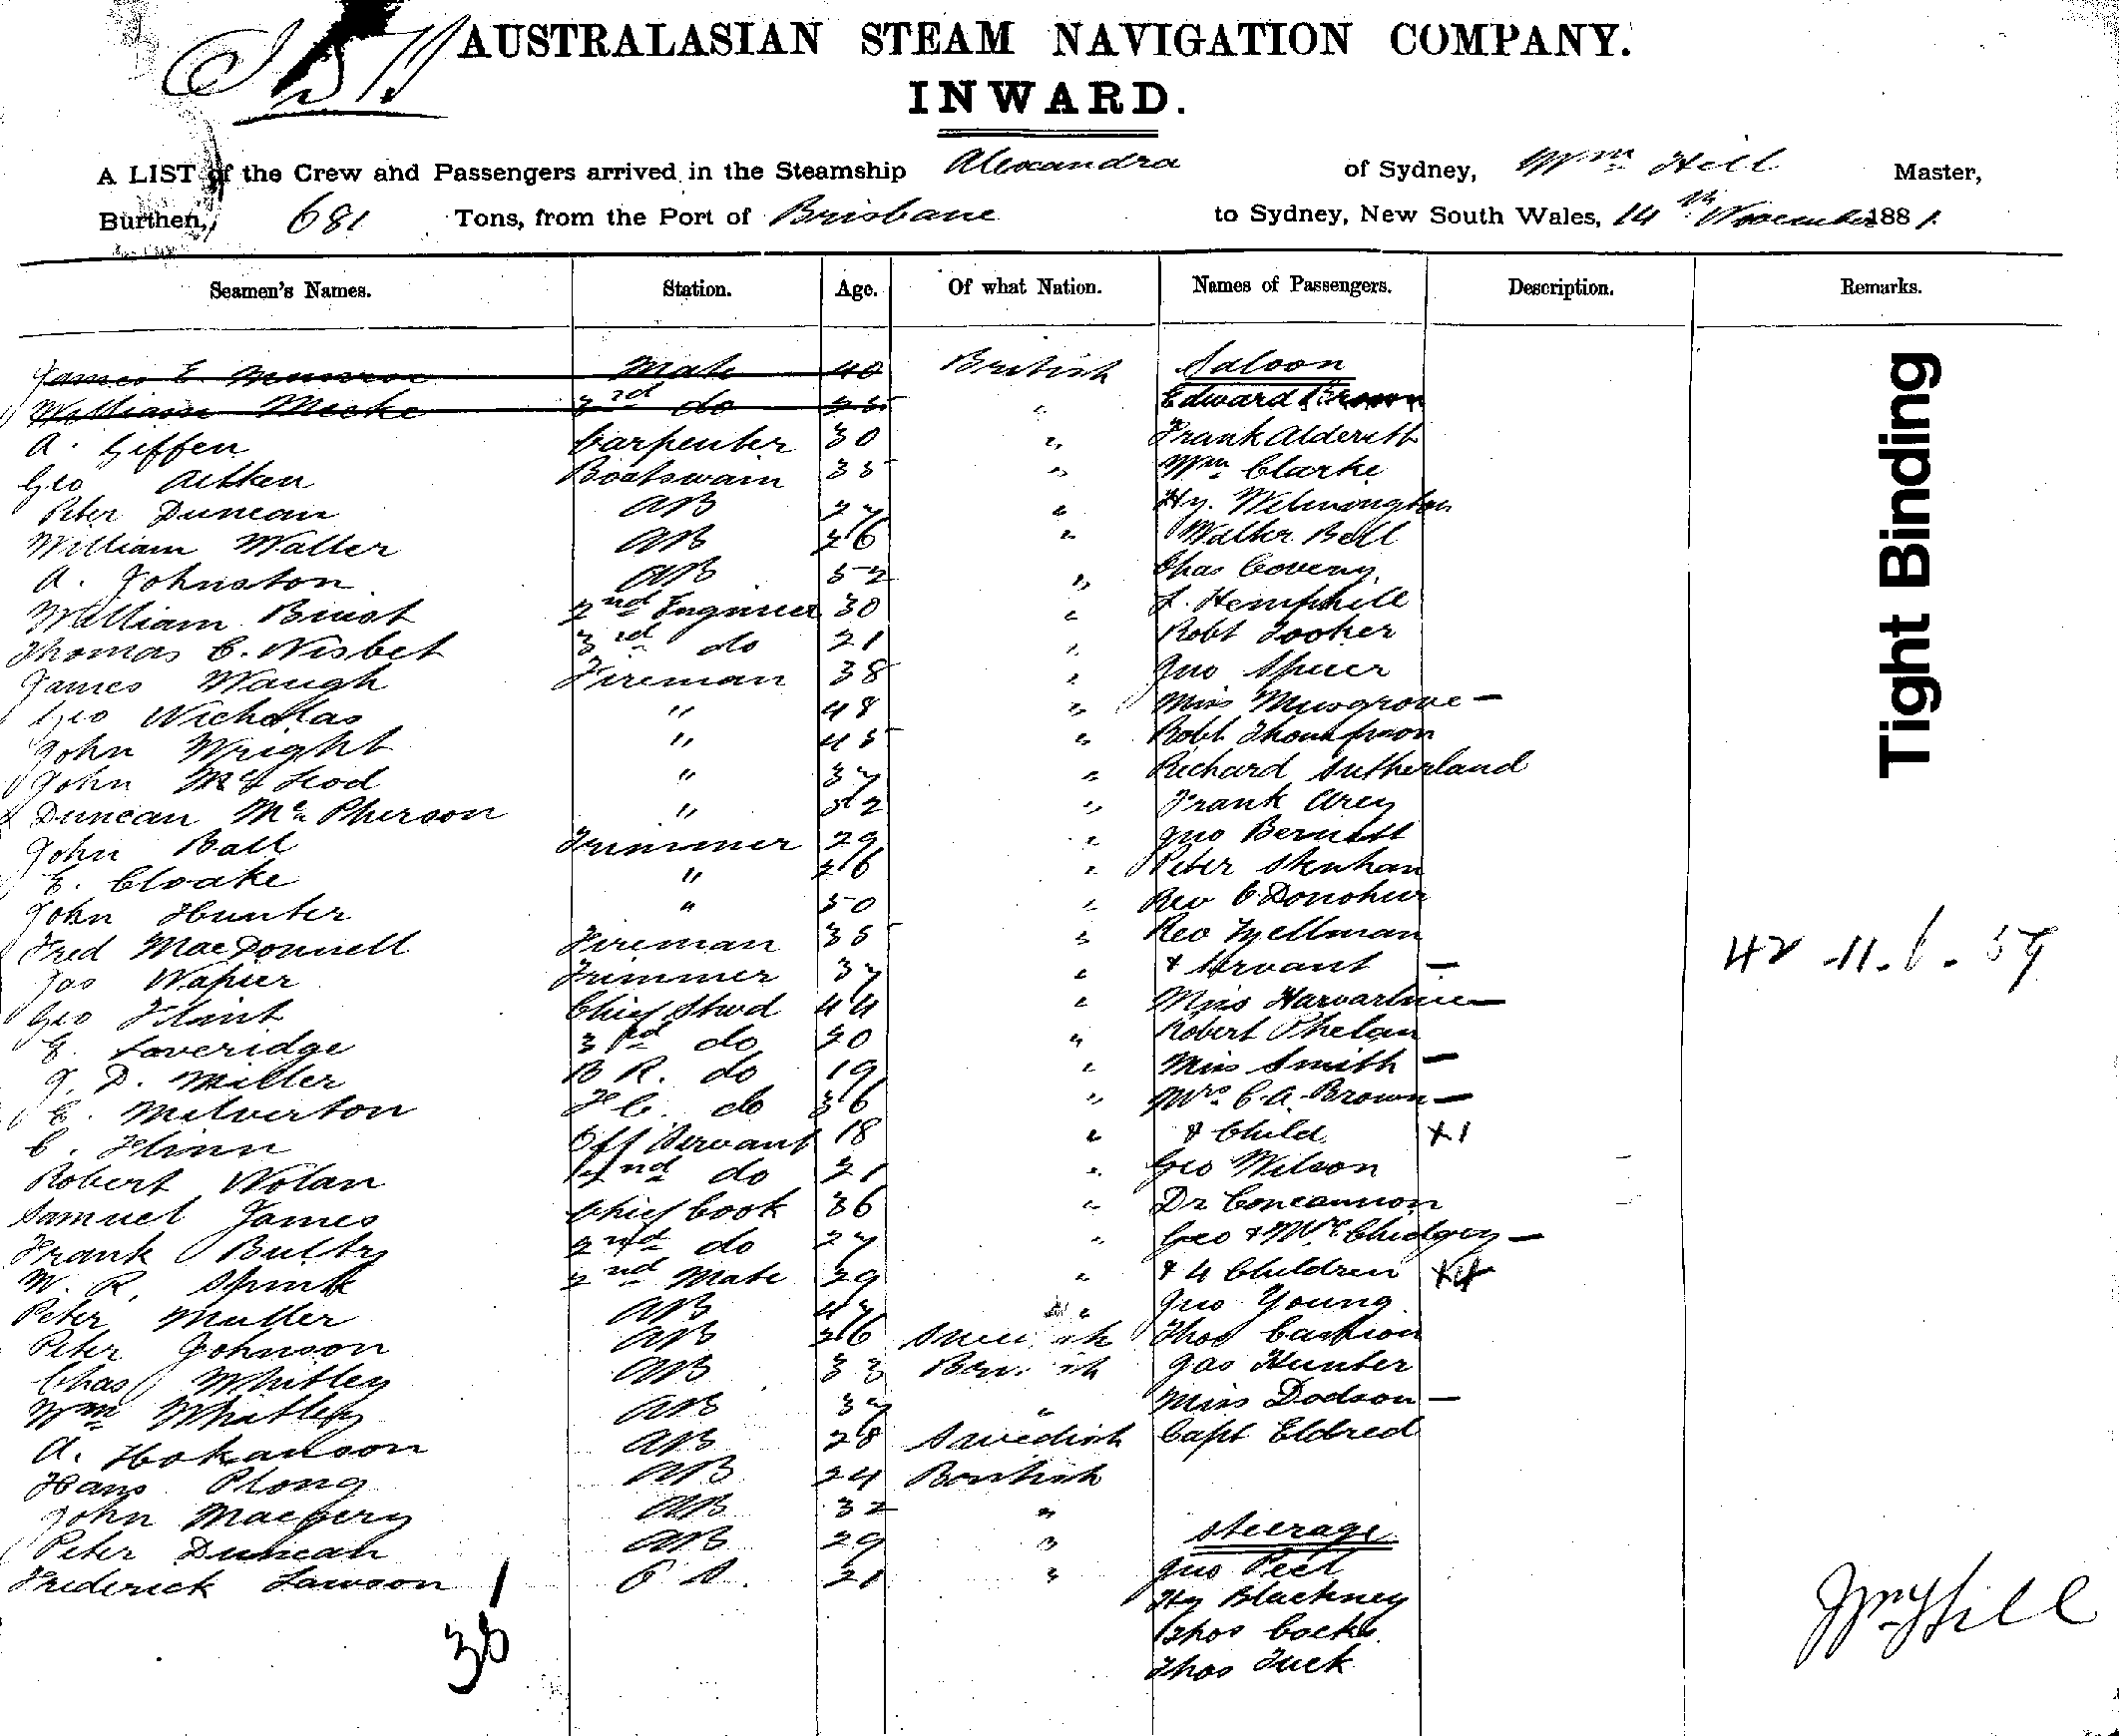 AUSTRALASIAN STEAM NAVIGATION COMPANY.
INWARD.
A LIST of the Crew and Passengers arrived in the Steamship Alexandra of Sydney, Wm Hill Master,
Burthen, 681 Tons, from the Port of Brisbane to Sydney, New South Wales, 14th November 1881.
Seamen's Names. Station. Age. Of what Nation. Names of Passengers. Description. Remarks.
James E. Munroe Mate 40 British Saloon
William Meeke 2nd do 25 " Edward Brown
A. Giffen Carpenter 30 " Frank Alderitt
Geo Aitken Boatswain 35 " Wm Clarke
Peter Duncan AB 27 " Hy. Wilmington
William Waller AB 26 " Walter Bell
A. Johnston AB 52 " Chas Coveny
William Binst 2nd Engineer 30 " J. Hemphill
Thomas C. Nisbet 3rd do 21 " Robt Tooker
James Waugh Fireman 38 " Jno Spicer
Geo Nicholas " 48 " Miss Musgrove —
John Wright " 45 " Robt Thompson
John McLeod " 37 " Richard Sutherland
Duncan McPherson " 32 " Frank Arey
John Ball Trimmer 29 " Jno Bernett
E. Cloake " 26 " Peter Stenhan
John Hunter " 50 " Rev O'Donohue
Fred MacDonnell Fireman 35 " Rev
Jas Napier Trimmer 37 " & Servant —
Geo Flint Chief Stwd 44 " Miss —
E. Loveridge 3rd do 20 " Robert Phelan
J. D. Miller B R. do 19 " Miss Smith —
E. Milverton F C. do 36 " Mrs C. A. Brown —
C. Flinn Off Servant 18 " & Child x1
Robert Nolan 2nd do 21 " Geo Wilson
Samuel James Chief Cook 36 " Dr Concannon
Frank Bulty 2nd do 27 " Geo & Mrs Chidgey —
W. R. Spink 2nd Mate 29 " & 4 Children x4
Peter Muller AB 47 " Jno Young
Peter Johnson AB 26 Swedish Thos Cashion
Chas Whitley AB 33 British Jas Hunter
Wm Whitley AB 37 " Miss Dodson —
A. Hokanson AB 28 Swedish Capt Eldred
Hans Plong AB 24 British
John AB 32 "
Peter Duncan AB 29 " Steerage
Frederick Lawson O S. 21 " Jno Peel
Hy Blackney
Thos Cocks
Thos Tuck
42 - 11. 6. 59
Wm Hill
Tight Binding